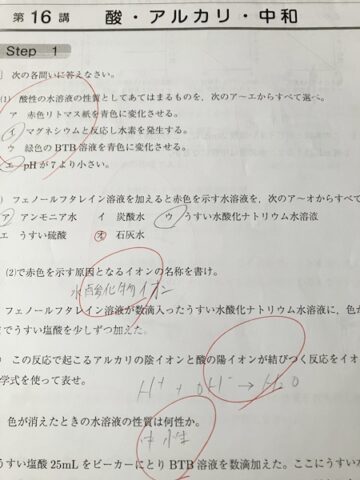 第 16 講 酸・アルカリ・中和
Step 1
次の各問いに答えなさい。
(1) 酸性の水溶液の性質としてあてはまるものを，次のア〜エからすべて選べ。
ア 赤色リトマス紙を青色に変化させる。
イ マグネシウムと反応し水素を発生する。
ウ 緑色のBTB溶液を青色に変化させる。
エ pHが7より小さい。
) フェノールフタレイン溶液を加えると赤色を示す水溶液を，次のア〜オからすべて
ア アンモニア水 イ 炭酸水 ウ うすい水酸化ナトリウム水溶液
エ うすい硫酸 オ 石灰水
(2)で赤色を示す原因となるイオンの名称を書け。
水酸化物イオン
フェノールフタレイン溶液が数滴入ったうすい水酸化ナトリウム水溶液に，色が
でうすい塩酸を少しずつ加えた。
この反応で起こるアルカリの陰イオンと酸の陽イオンが結びつく反応をイオ
学式を使って表せ。
H⁺ + OH⁻ → H₂O
色が消えたときの水溶液の性質は何性か。
中性
うすい塩酸25mLをビーカーにとりBTB溶液を数滴加えた。ここにうすい水